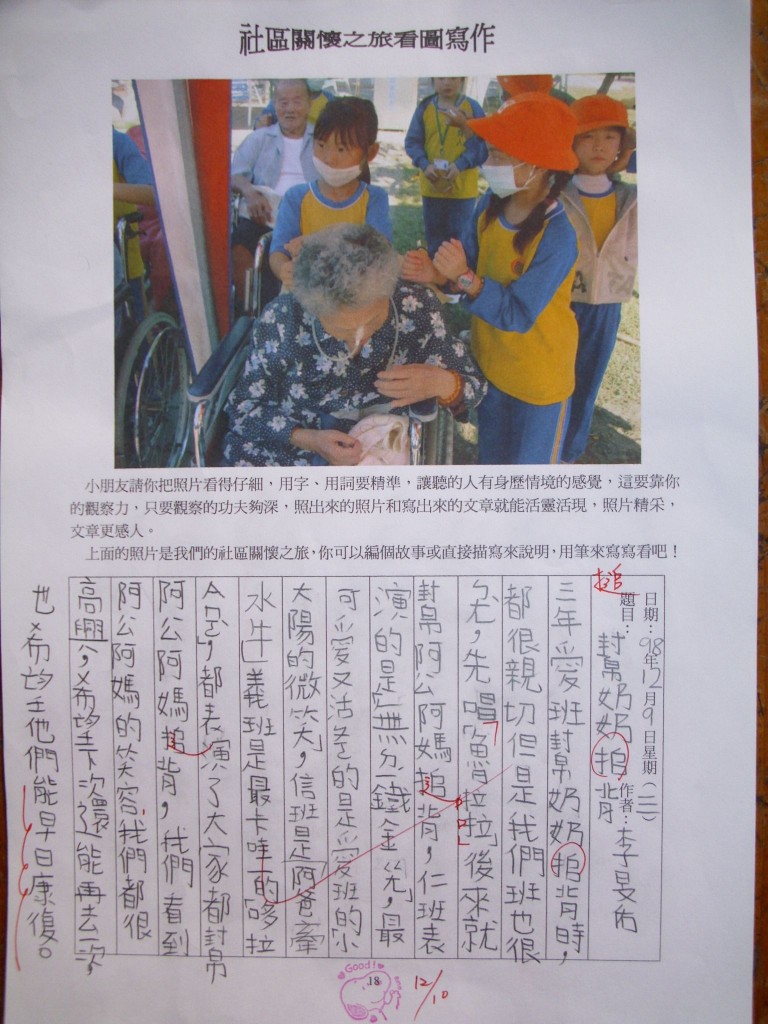 社區關懷之旅看圖寫作
小朋友請你把照片看得仔細,用字、用詞要精準,讓聽的人有身歷情境的感覺,這要靠你
的觀察力,只要觀察的功夫夠深,照出來的照片和寫出來的文章就能活靈活現,照片精采,
文章更感人。
上面的照片是我們的社區關懷之旅,你可以編個故事或直接描寫來說明,用筆來寫寫看吧!
日期:98年12月9日星期(三)
搥
題目:幫奶奶搥背 作者:李旻
三年愛班幫奶奶搥背時,
都很親切但是我們班也很
先唱「魚拉拉」後來就
幫阿公阿媽搥背,仁班表
演的是「無 鐵金ㄍㄤ,最
可愛又活 的是愛班的「小
太陽的微笑,信班是「阿爸牽
水牛」義班是最卡哇ㄧ的「哆拉
A ,都表演了大家都幫
阿公阿媽搥背,我們看到
阿公阿媽的笑容,我們都很
高興 ,希望下次還能再去一次,
也希望他們能早日康復。
Good!
18
12/10